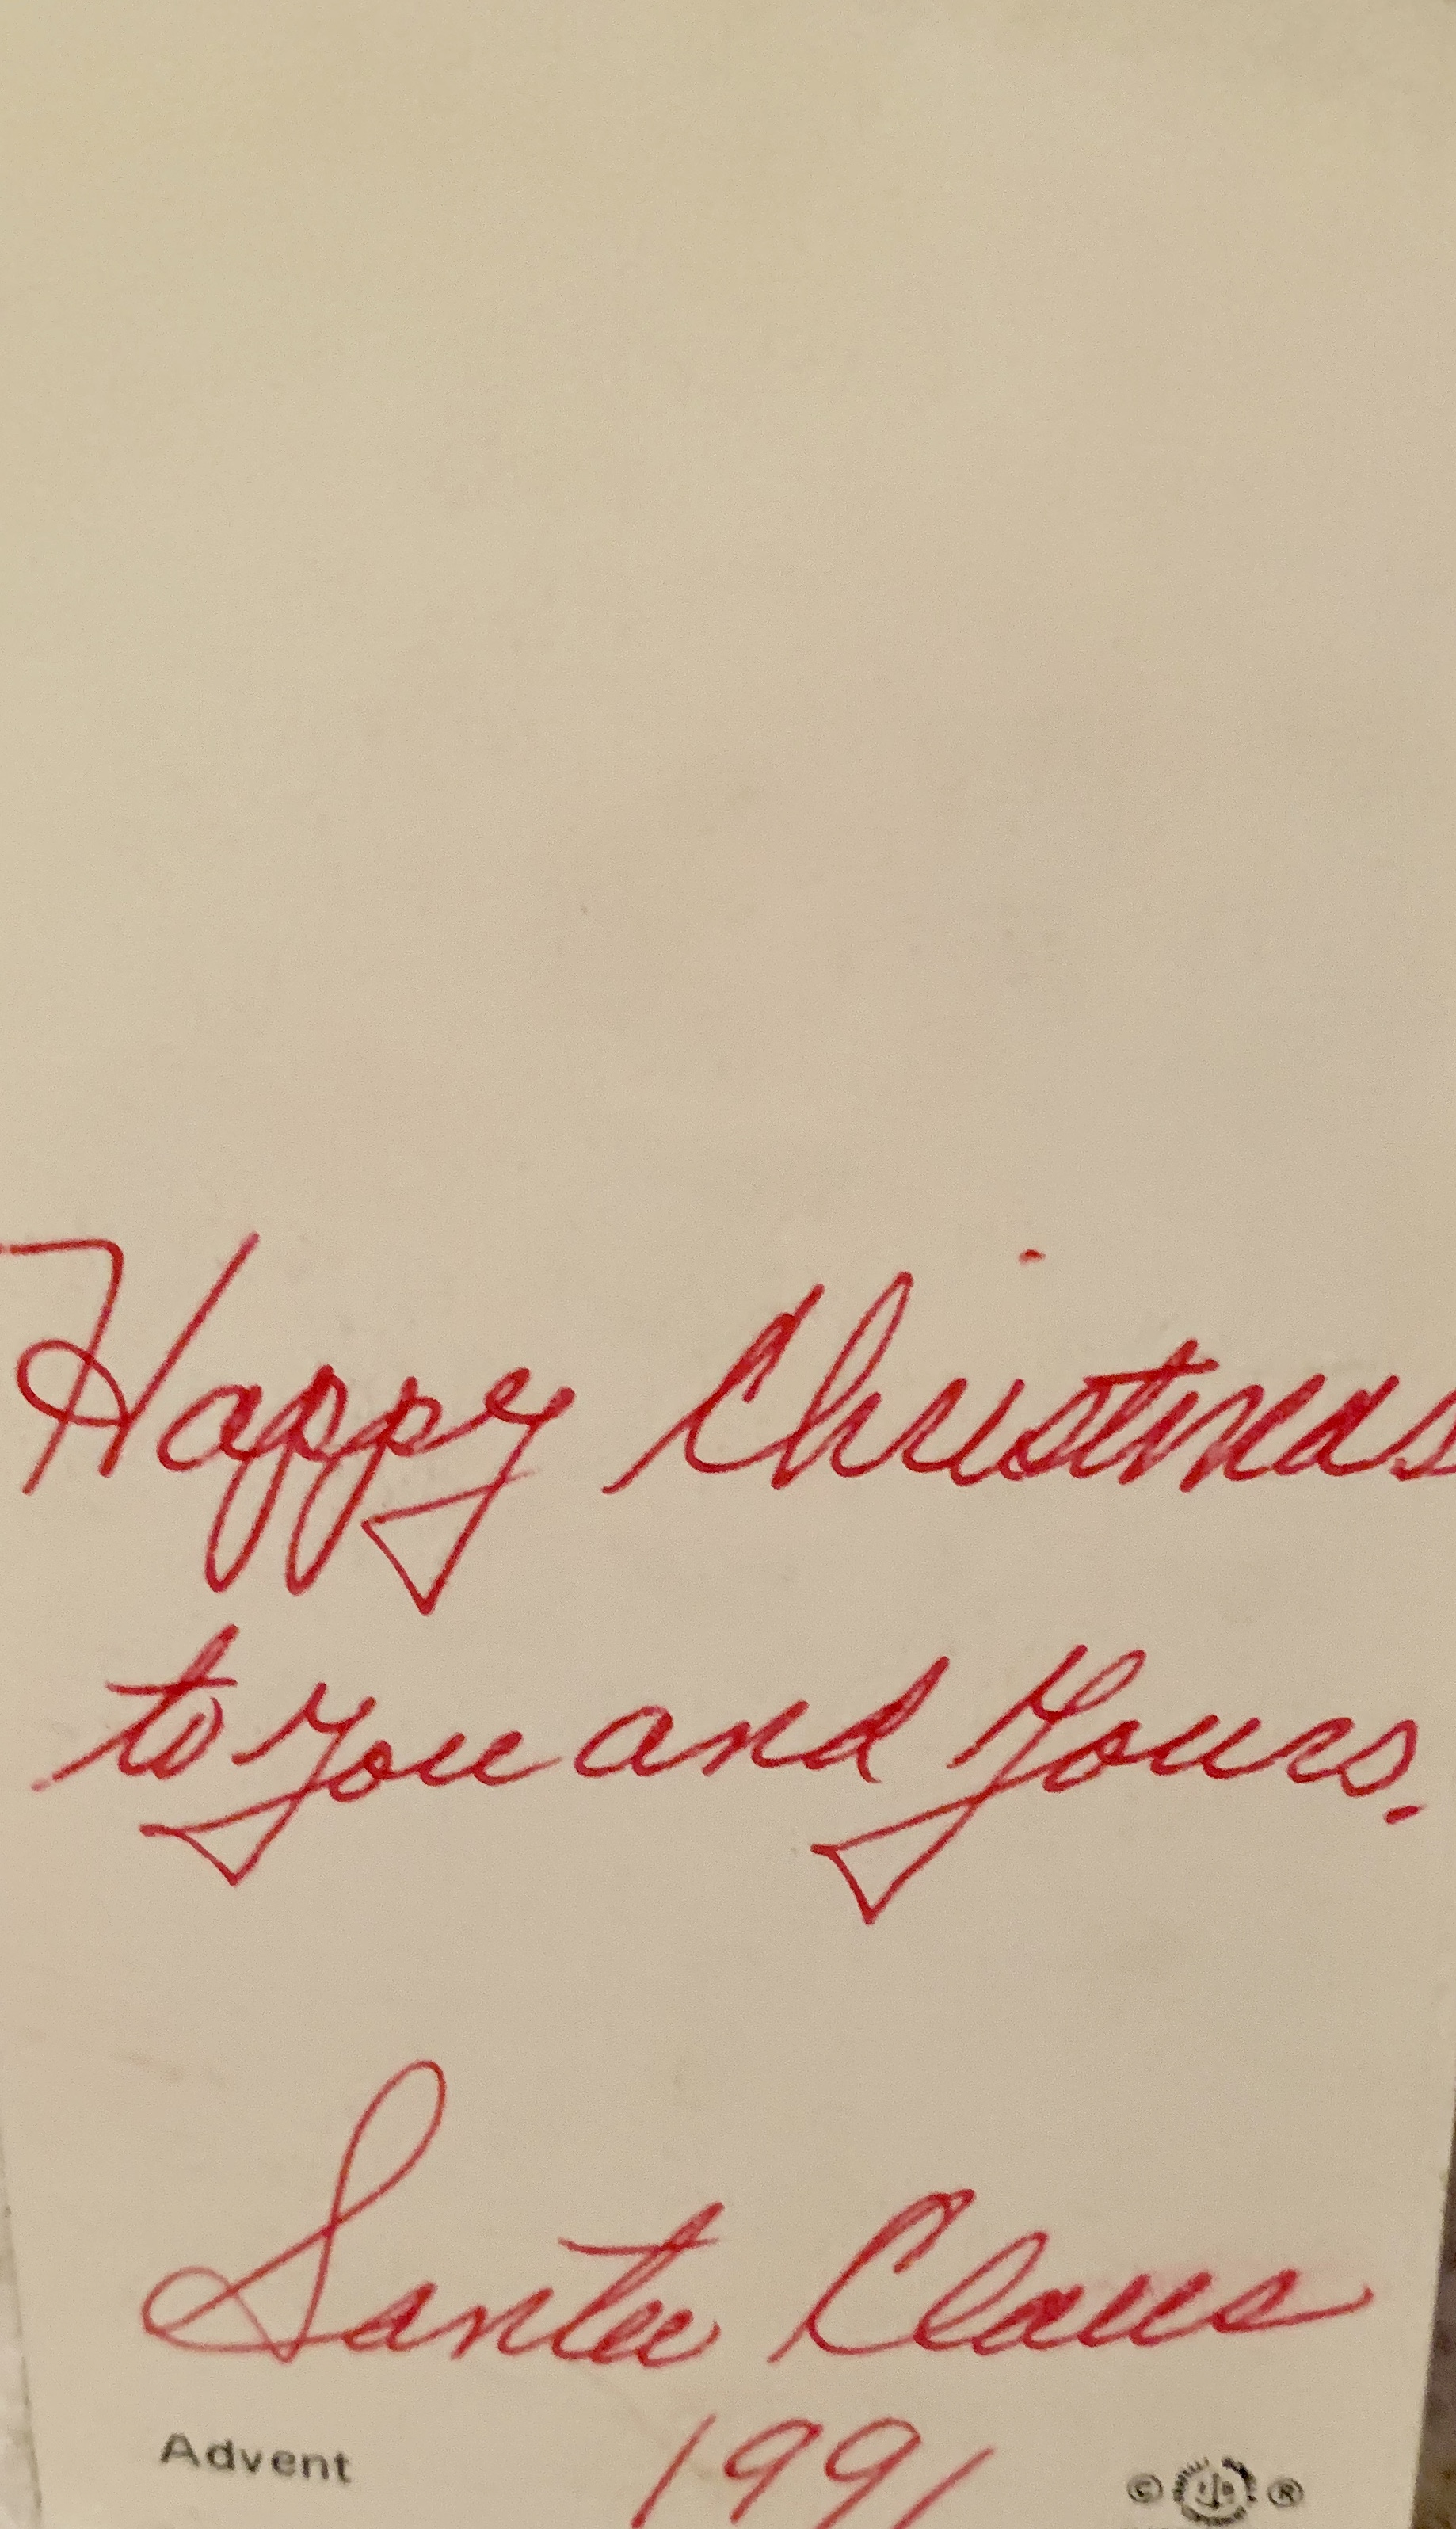 Happy Christmas
to you and Yours.
Santa Claus
1991
Advent
© ®